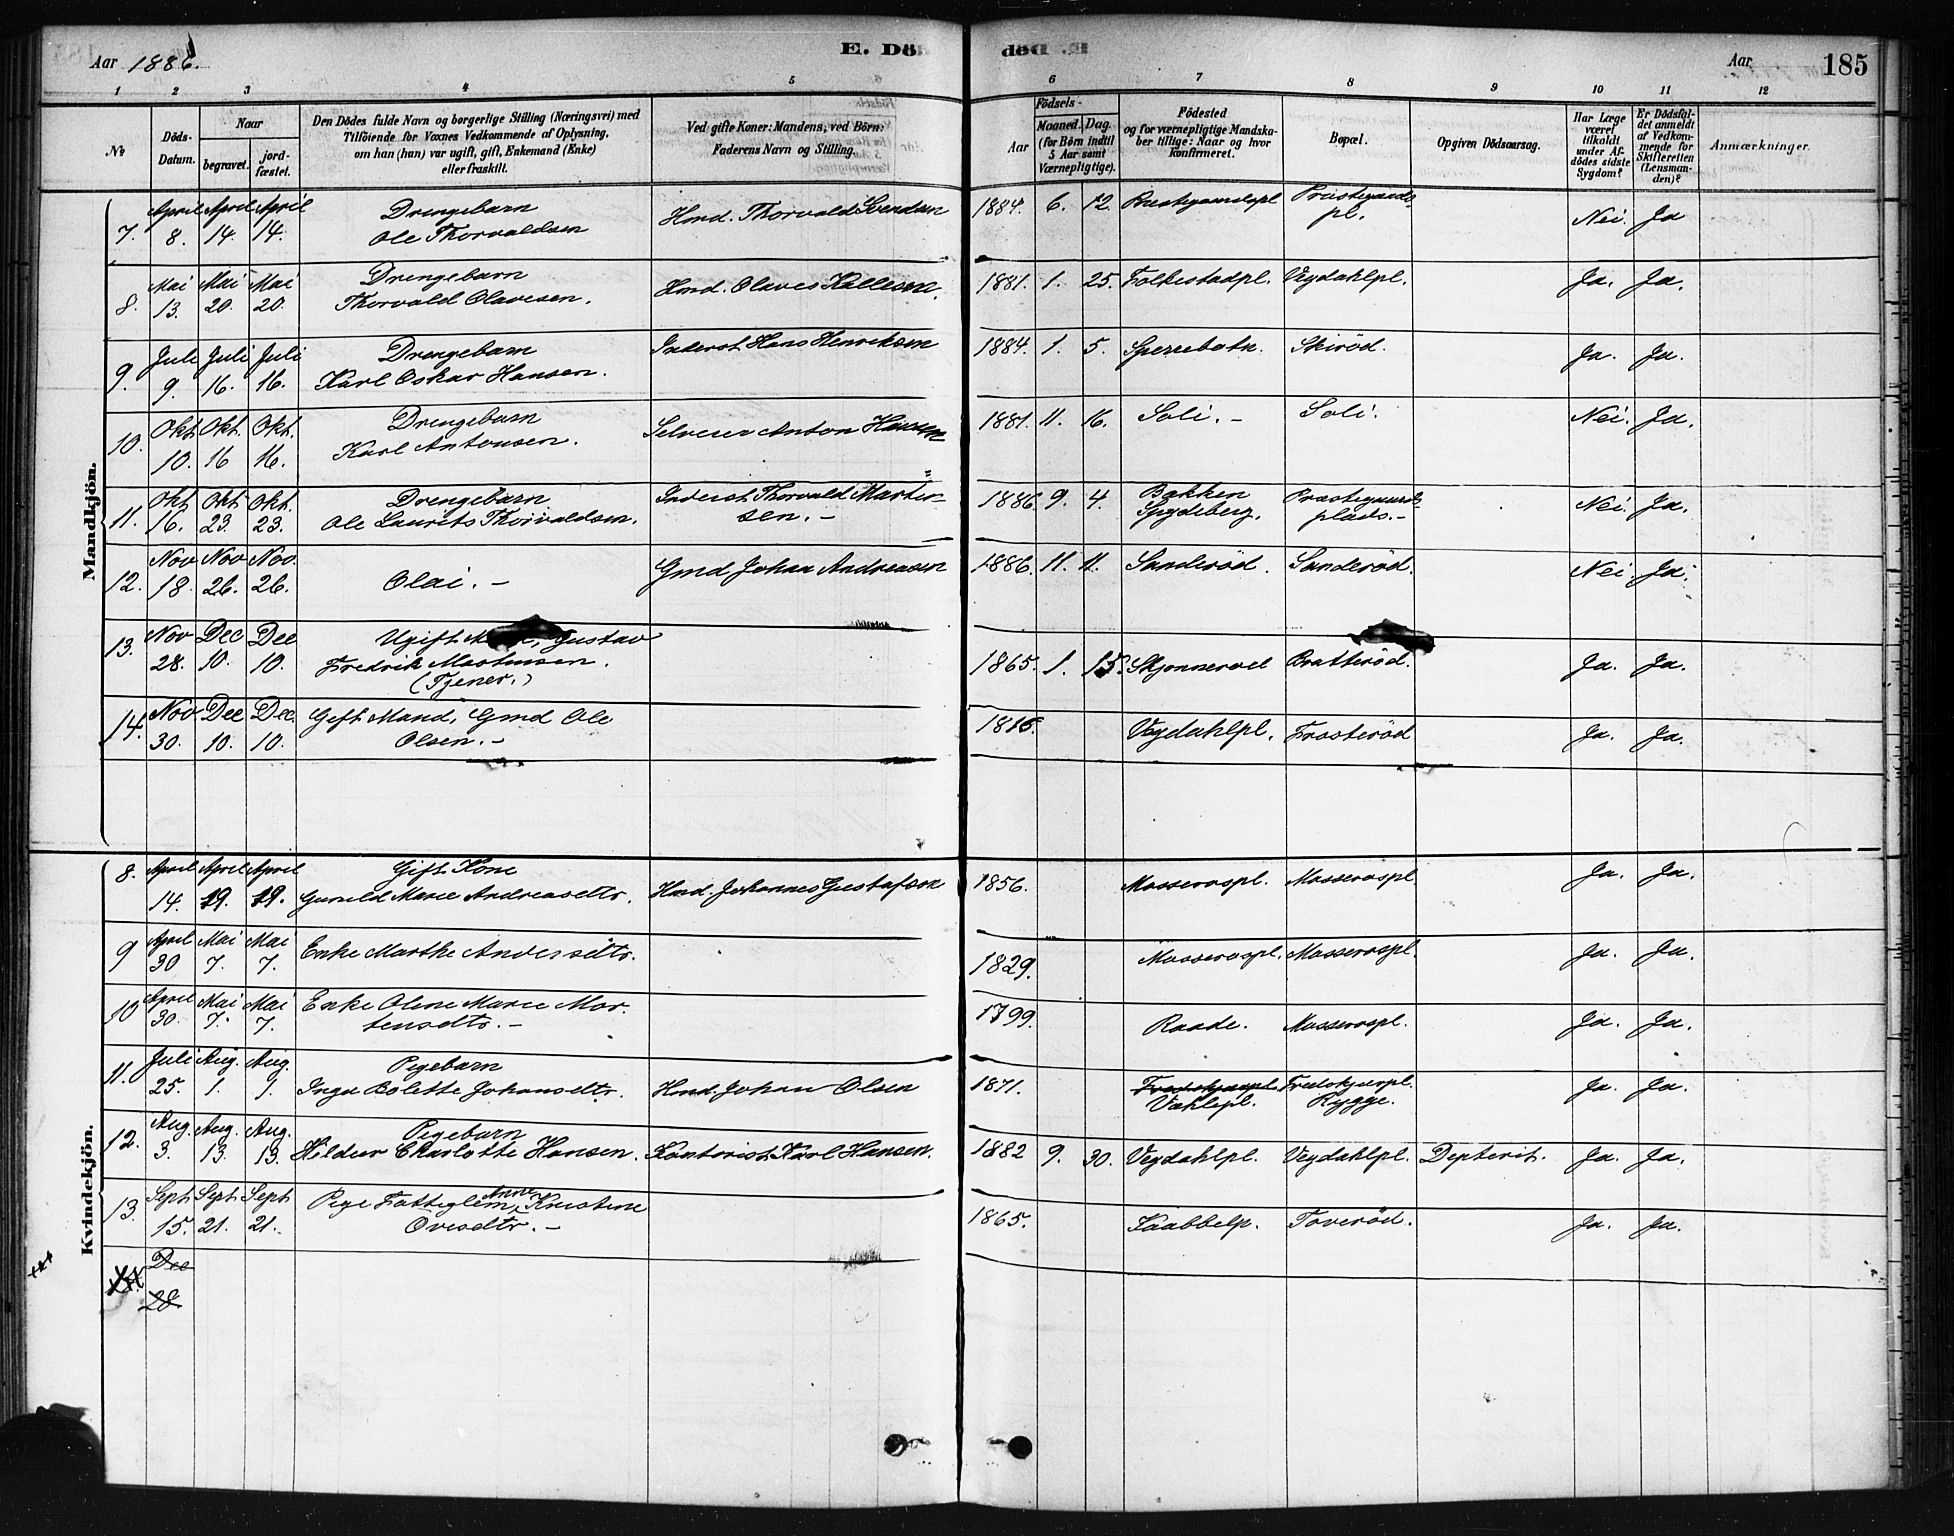 Aar 1886.
E. Dö
död
Aar 185
1 2 3 4 5 6 7 8 9 10 11 12
No
Döds-Datum.
Naar
begravet.
jordfæstet.
Den Dödes fulde Navn og borgerlige Stilling (Næringsvei) med
Tilföiende for Voxnes Vedkommende af Oplysning,
om han (hun) var ugift, gift, Enkemand (Enke)
eller fraskilt.
Ved gifte Koner: Mandens, ved Börn:
Faderens Navn og Stilling.
Födsels-
Aar
Maaned. Dag.
(for Börn indtil
5 Aar samt
Værnepligtige).
Födested
og for værnepligtige Mandska-
ber tillige: Naar og hvor
Konfirmeret.
Bopæl.
Opgiven Dödsaarsag.
Har Læge
været
tilkaldt
under Af-
dödes sidste
Sygdom?
Er Dödsfal-
det anmeldt
af Vedkom-
mende for
Skifteretten
(Lensman-
den)?
Anmærkninger.
Mandkjön.
7. April 8. April 14. April 14. Drengebarn Ole Thorvaldsen Hmd. Thorvald Svendsen 1884. 6. 12. Præstegaardspl Præstegaardspl. Nei Ja
8. Mai 13. Mai 20. Mai 20. Drengebarn Thorvald Olavesen. Hmd. Olaves Kallesen. 1881. 1. 25. Folkestadpl. Veydahlpl. Ja. Ja.
9. Juli 9. Juli 16. Juli 16. Drengebarn Karl Oskar Hansen. Inderst Hans Henriksen 1884. 1. 5. Sperrebotn. Skiröd. Ja. Ja.
10. Okt. 10. Okt. 16 Okt. 16. Drengebarn Karl Antonsen. Selveier Anton Hansen 1881. 11. 16. Soli. - Soli. Nei. Ja.
11. Okt 16. Okt 23. Okt. 23. Drengebarn Ole Laurits Thorvaldsen. Inderst Thorvald Marten=sen. - 1886. 9. 4. Bakken Spydeberg. Præstegaards plads. - Nei. Ja.
12. Nov 18. Nov 26. Nov. 26. Olai. - Gmd Johan Andreasen 1886. 11. 11. Sanderöd. Sanderöd. Nei. Ja.
13. Nov 28. Dec 10. Dec 10. Ugift Gustav Fredrik Mortensen. (Tjener.) 1865. 1. 15. Skjonneroel Bratteröd. Ja. Ja.
14. Nov 30. Dec 10. Dec. 10. Gift Mand, Gmd Ole Olsen. - 1815. Veydahlpl. Frosteröd Ja. Ja.
Kvindekjön.
8. April 14. April 19. April 19. Gift Kone Gunild Marie Andreasdtr. Hmd. Johannes Gustafsen 1856. Mosserospl. Mosserospl. Ja. Ja.
9 April 30 Mai 7. Mai 7. Enke Marthe Andersdtr. 1829. Mosserospl. Mosserospl. Ja. Ja.
10 April 30. Mai 7. Mai 7. Enke Olene Marie Mortensdtr. - 1799. Raade. Mosserospl. Ja. Ja.
11. Juli 25. Aug. 1. Aug. 1. Pigebarn Inga Bolette Johansdtr. Hmd. Johan Olsen 1871. Fredskjærpl. Vahlepl. Fredskjærpl. Rygge. Ja. Ja.
12. Aug. 3. Aug. 13. Aug. 13. Pigebarn Hildur Charlotte Hansen. Kontorist Karl Hansen. 1882 9. 30. Veydahlpl. Veydahlpl. Depterit. Ja. Ja.
13. Sept 15. Sept 21. Sept 21. Pige Fattiglem, Anne Kristine Ovesdtr. - 1865. Kaabbelp. Toveröd. Ja. Ja.
14. Dec 28